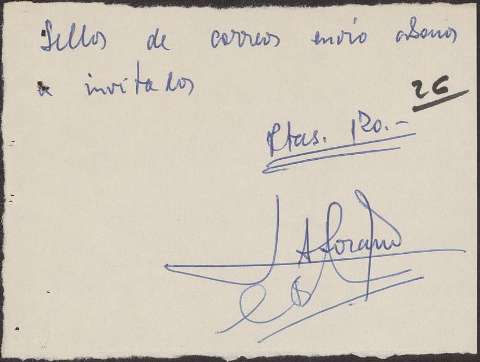 Sellos de correos envío abonos
a invitados
26
Ptas. 120.-